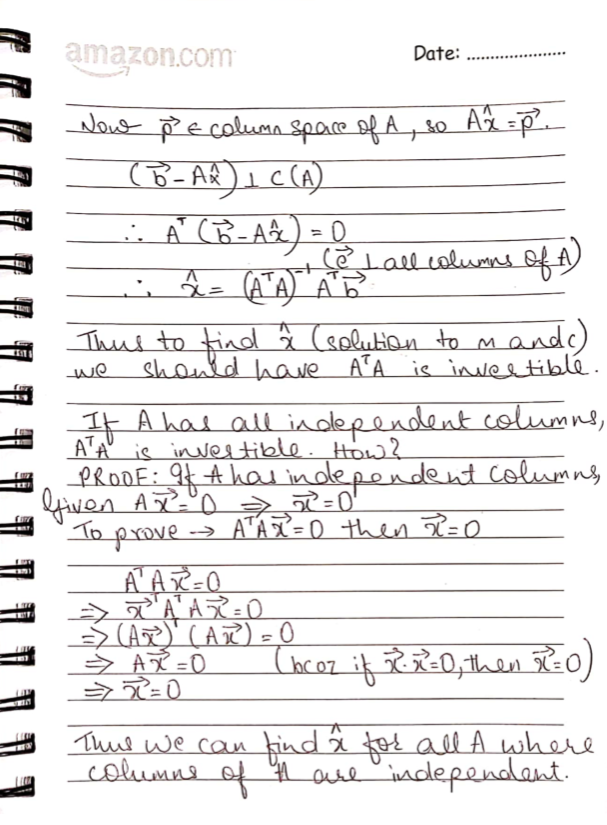 amazon.com
Date: .....................
Now p⃗ ∈ column space of A, so Ax̂ = p⃗.
(b⃗ - Ax̂) ⊥ C(A)
∴ Aᵀ (b⃗ - Ax̂) = 0
(e⃗ ⊥ all columns of A)
∴ x̂ = (AᵀA)⁻¹ Aᵀb⃗
Thus to find x̂ (solution to m and c)
we should have AᵀA is invertible.
If A has all independent columns,
AᵀA is invertible. How?
PROOF: If A has independent columns,
Given Ax⃗ = 0 ⇒ x⃗ = 0
To prove → AᵀAx⃗ = 0 then x⃗ = 0
AᵀAx⃗ = 0
⇒ x⃗ᵀAᵀAx⃗ = 0
⇒ (Ax⃗)ᵀ (Ax⃗) = 0
⇒ Ax⃗ = 0 (bcoz if x⃗.x⃗ = 0, then x⃗ = 0)
⇒ x⃗ = 0
Thus we can find x̂ for all A where
columns of A are independent.